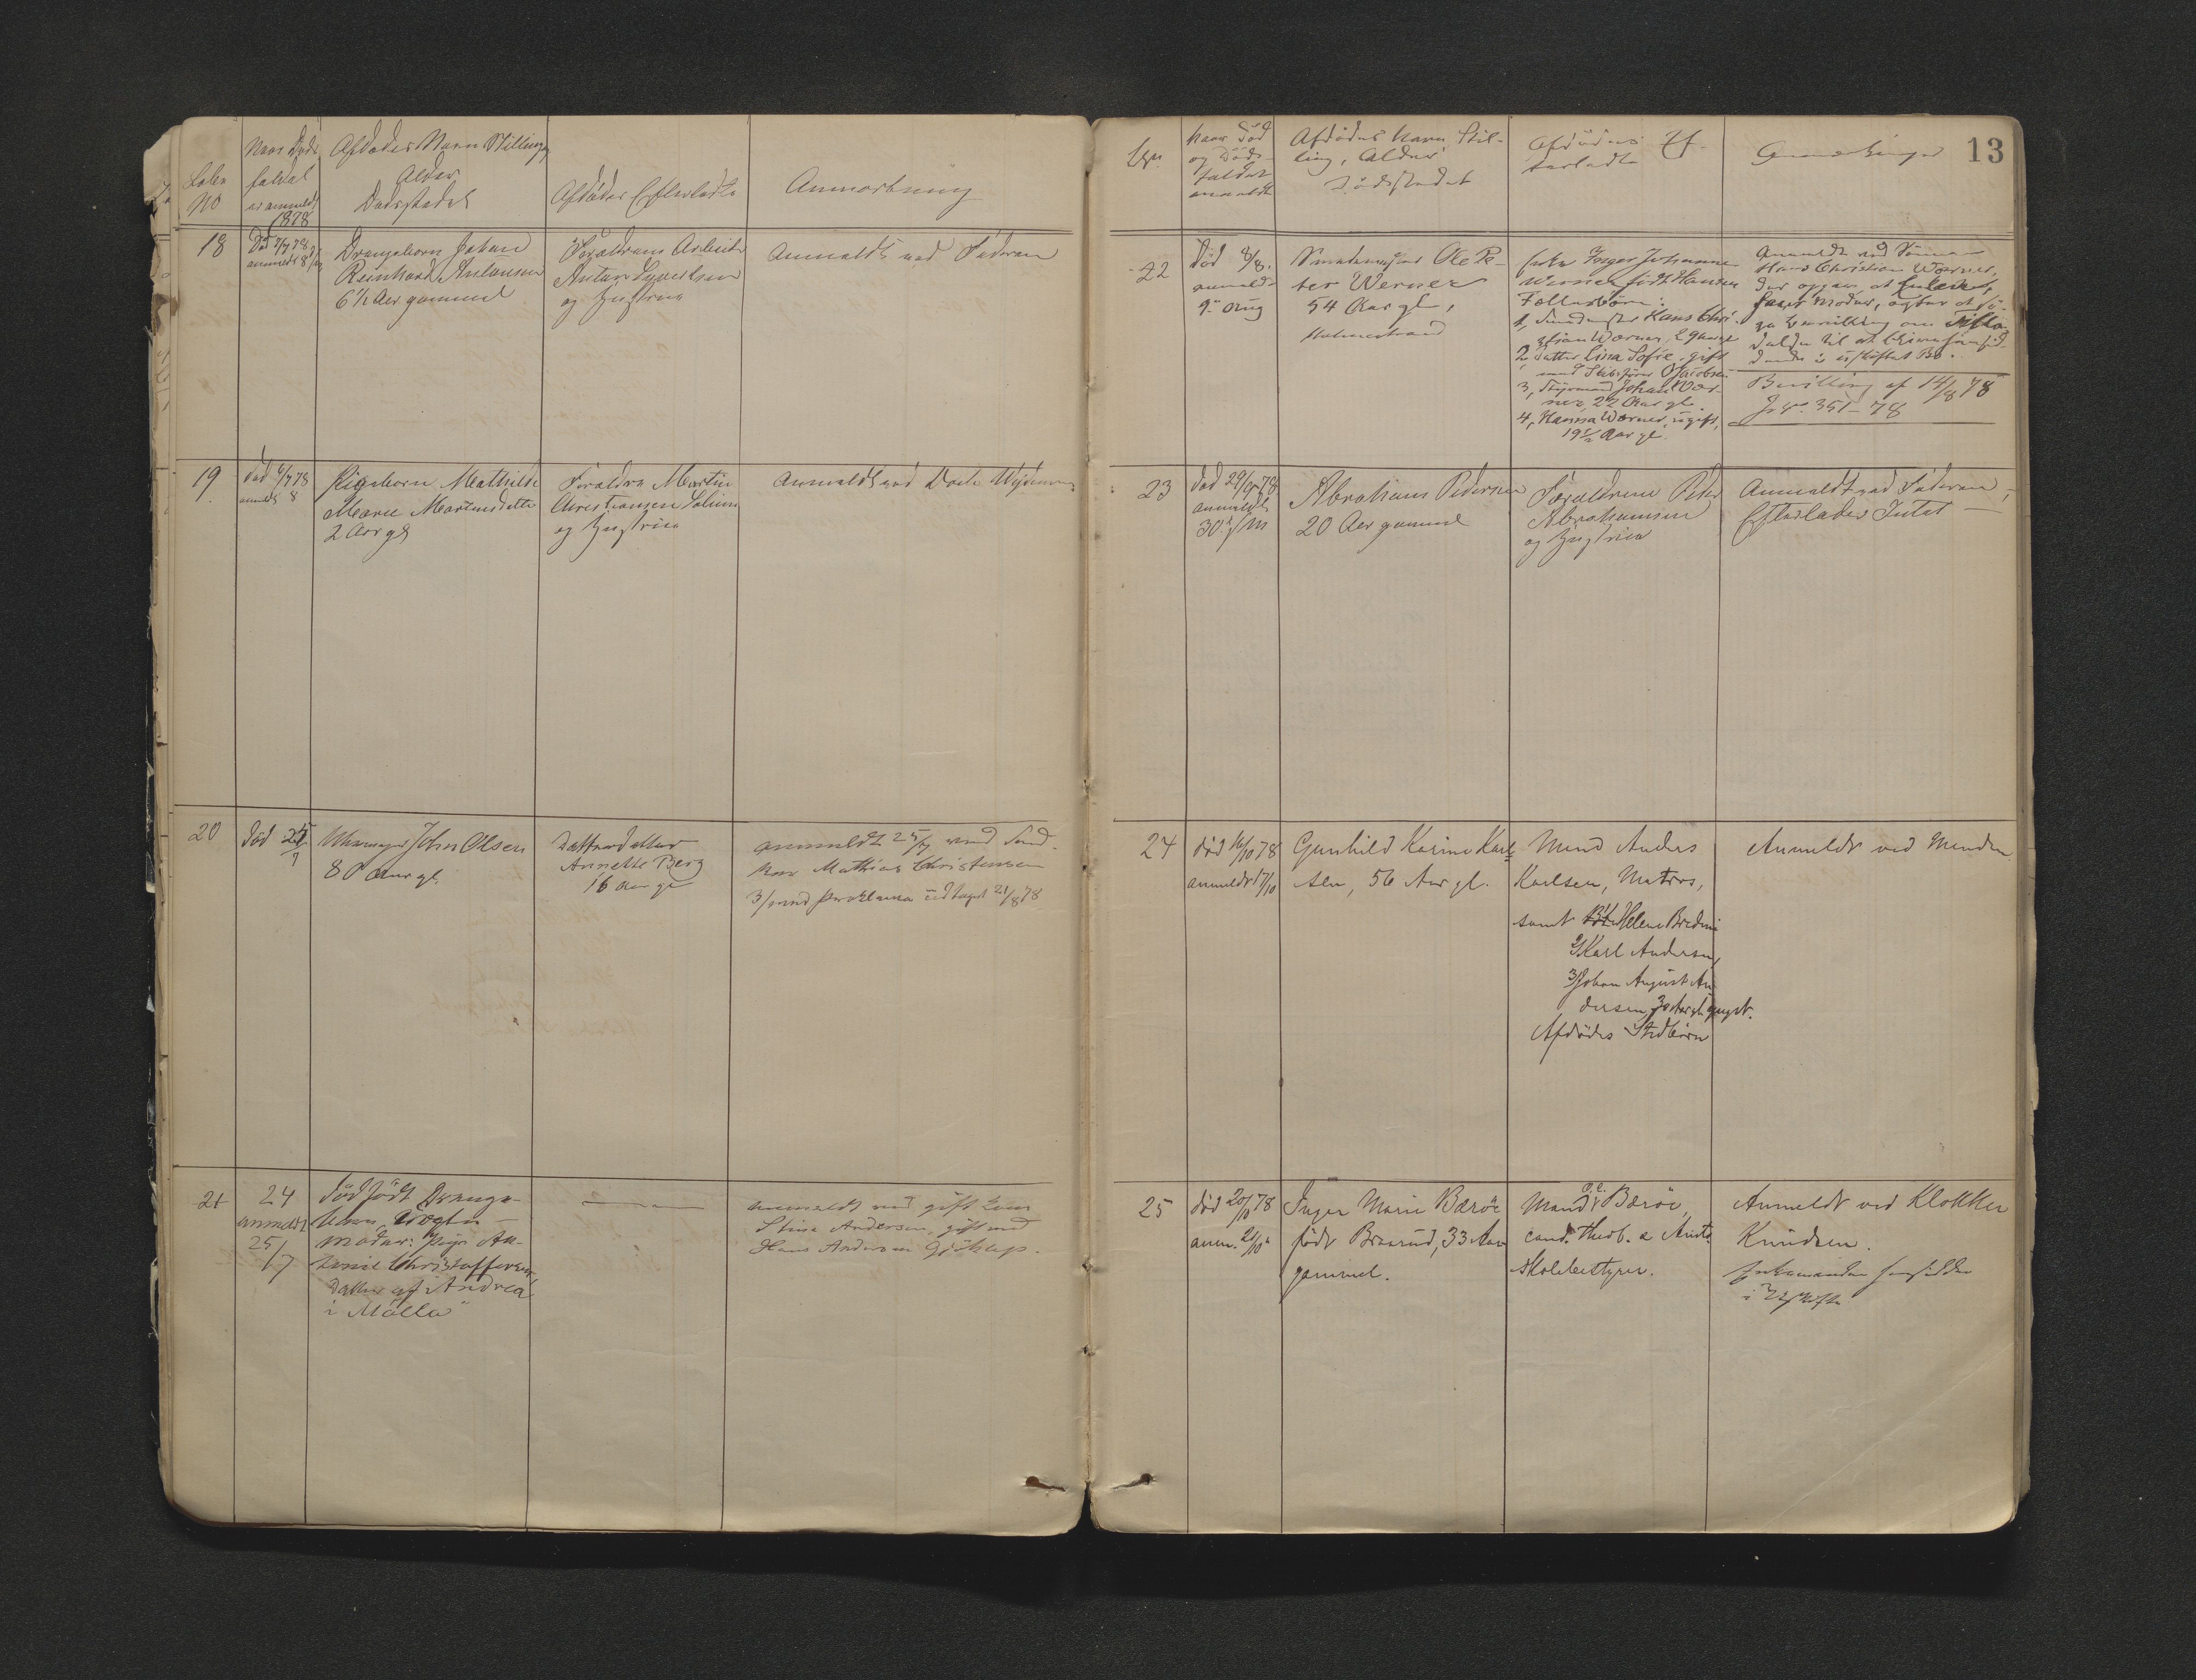 Løbe
No
Naar Døds
faldet
er anmeldt
1878
Afdødes Navn Stilling
Alder
Dødsstedet
Afdødes Efterladte
Anmærkning
18
Død 7/7 78
anmeldt 8/7
Drengebarn Johan
Reinhard Antonsen
6 1/2 Aar gammel
Forældrene Arbeider
Anton Syvertsen
og Hustru
Anmeldt ved Faderen
19
død 6/7 78
anmeldt 8
Pigebarn Mathilde
Marie Martinsdatter
2 Aar gl
Forældre Martin
Christiansen Solum
og Hustru
Anmeldt ved Dorthe
20
død 24/7
John Olsen
80 Aar gl.
Datterdatter
Annette Berg
16 Aar gl
anmeldt 25/7 ved
Mathias Christensen
3/mnd Proklama udtaget 21/8 78
21
24
anmeldt
25/7
Dødfødt Drenge-
barn, uægte
Moder: Pige An-
Christoffersen
Datter af "Andrea
i Mølla"
anmeldt ved gift Kone
Stina Andersen, gift med
Hans Andersen
13
Lbn.
Naar Død
og Døds-
faldet
anmeldt
Afdødes Navn, Stil-
ling, Alder
Dødsstedet
Afdødes Ef-
terladte
Anmærkninger
22
Død 8/8.
anmeldt
9de Aug
Ole Pe-
ter Werner
54 Aar gl,
Holmestrand
Enke Inger Johanne
Werner født Hansen
Fællesbørn:
1, Hans Chri-
stian Werner,
2, Datter Lina Sofie, gift
med Skibsfører O Jacobsen
3, Styrmand Johan Wer-
ner 22 Aar gl.
4, Hanna Werner, ugift,
19 1/2 Aar gl.
Anmeldt ved Sønnen
Hans Christian Werner,
der opgav, at Enken,
hans Moder, agter at sø-
ge Bevilling om Tilla-
delse til at hensid-
dende i uskiftet Bo.
Bevilling af 14/8 78
J No. 351-78
23
død 29/9 78
anmeldt
30te f/M
Abraham Pedersen
20 Aar gammel
Forældrene Peder
Abrahamsen
og Hustru
Anmeldt ved Faderen,
Efterlader Intet
24
død 16/10 78
anmeldt 17/10
Gunhild Karine Karl-
sen, 56 Aar gl.
Mand Anders
Karlsen, Matros,
samt Helene
2/ Karl Andersen,
3/ Johan August An-
dersen
Afdødes Stedbørn
Anmeldt ved Manden
25
død 20/10 78
anm. 21/10
Inger Marie Bærøe
født Braarud, 33 Aar
gammel.
Mand Bærøe,
cand. theol. &
Skolebestyrer.
Anmeldt ved Klokker
Knudsen.
Enkemanden hensidder
i Uskifte